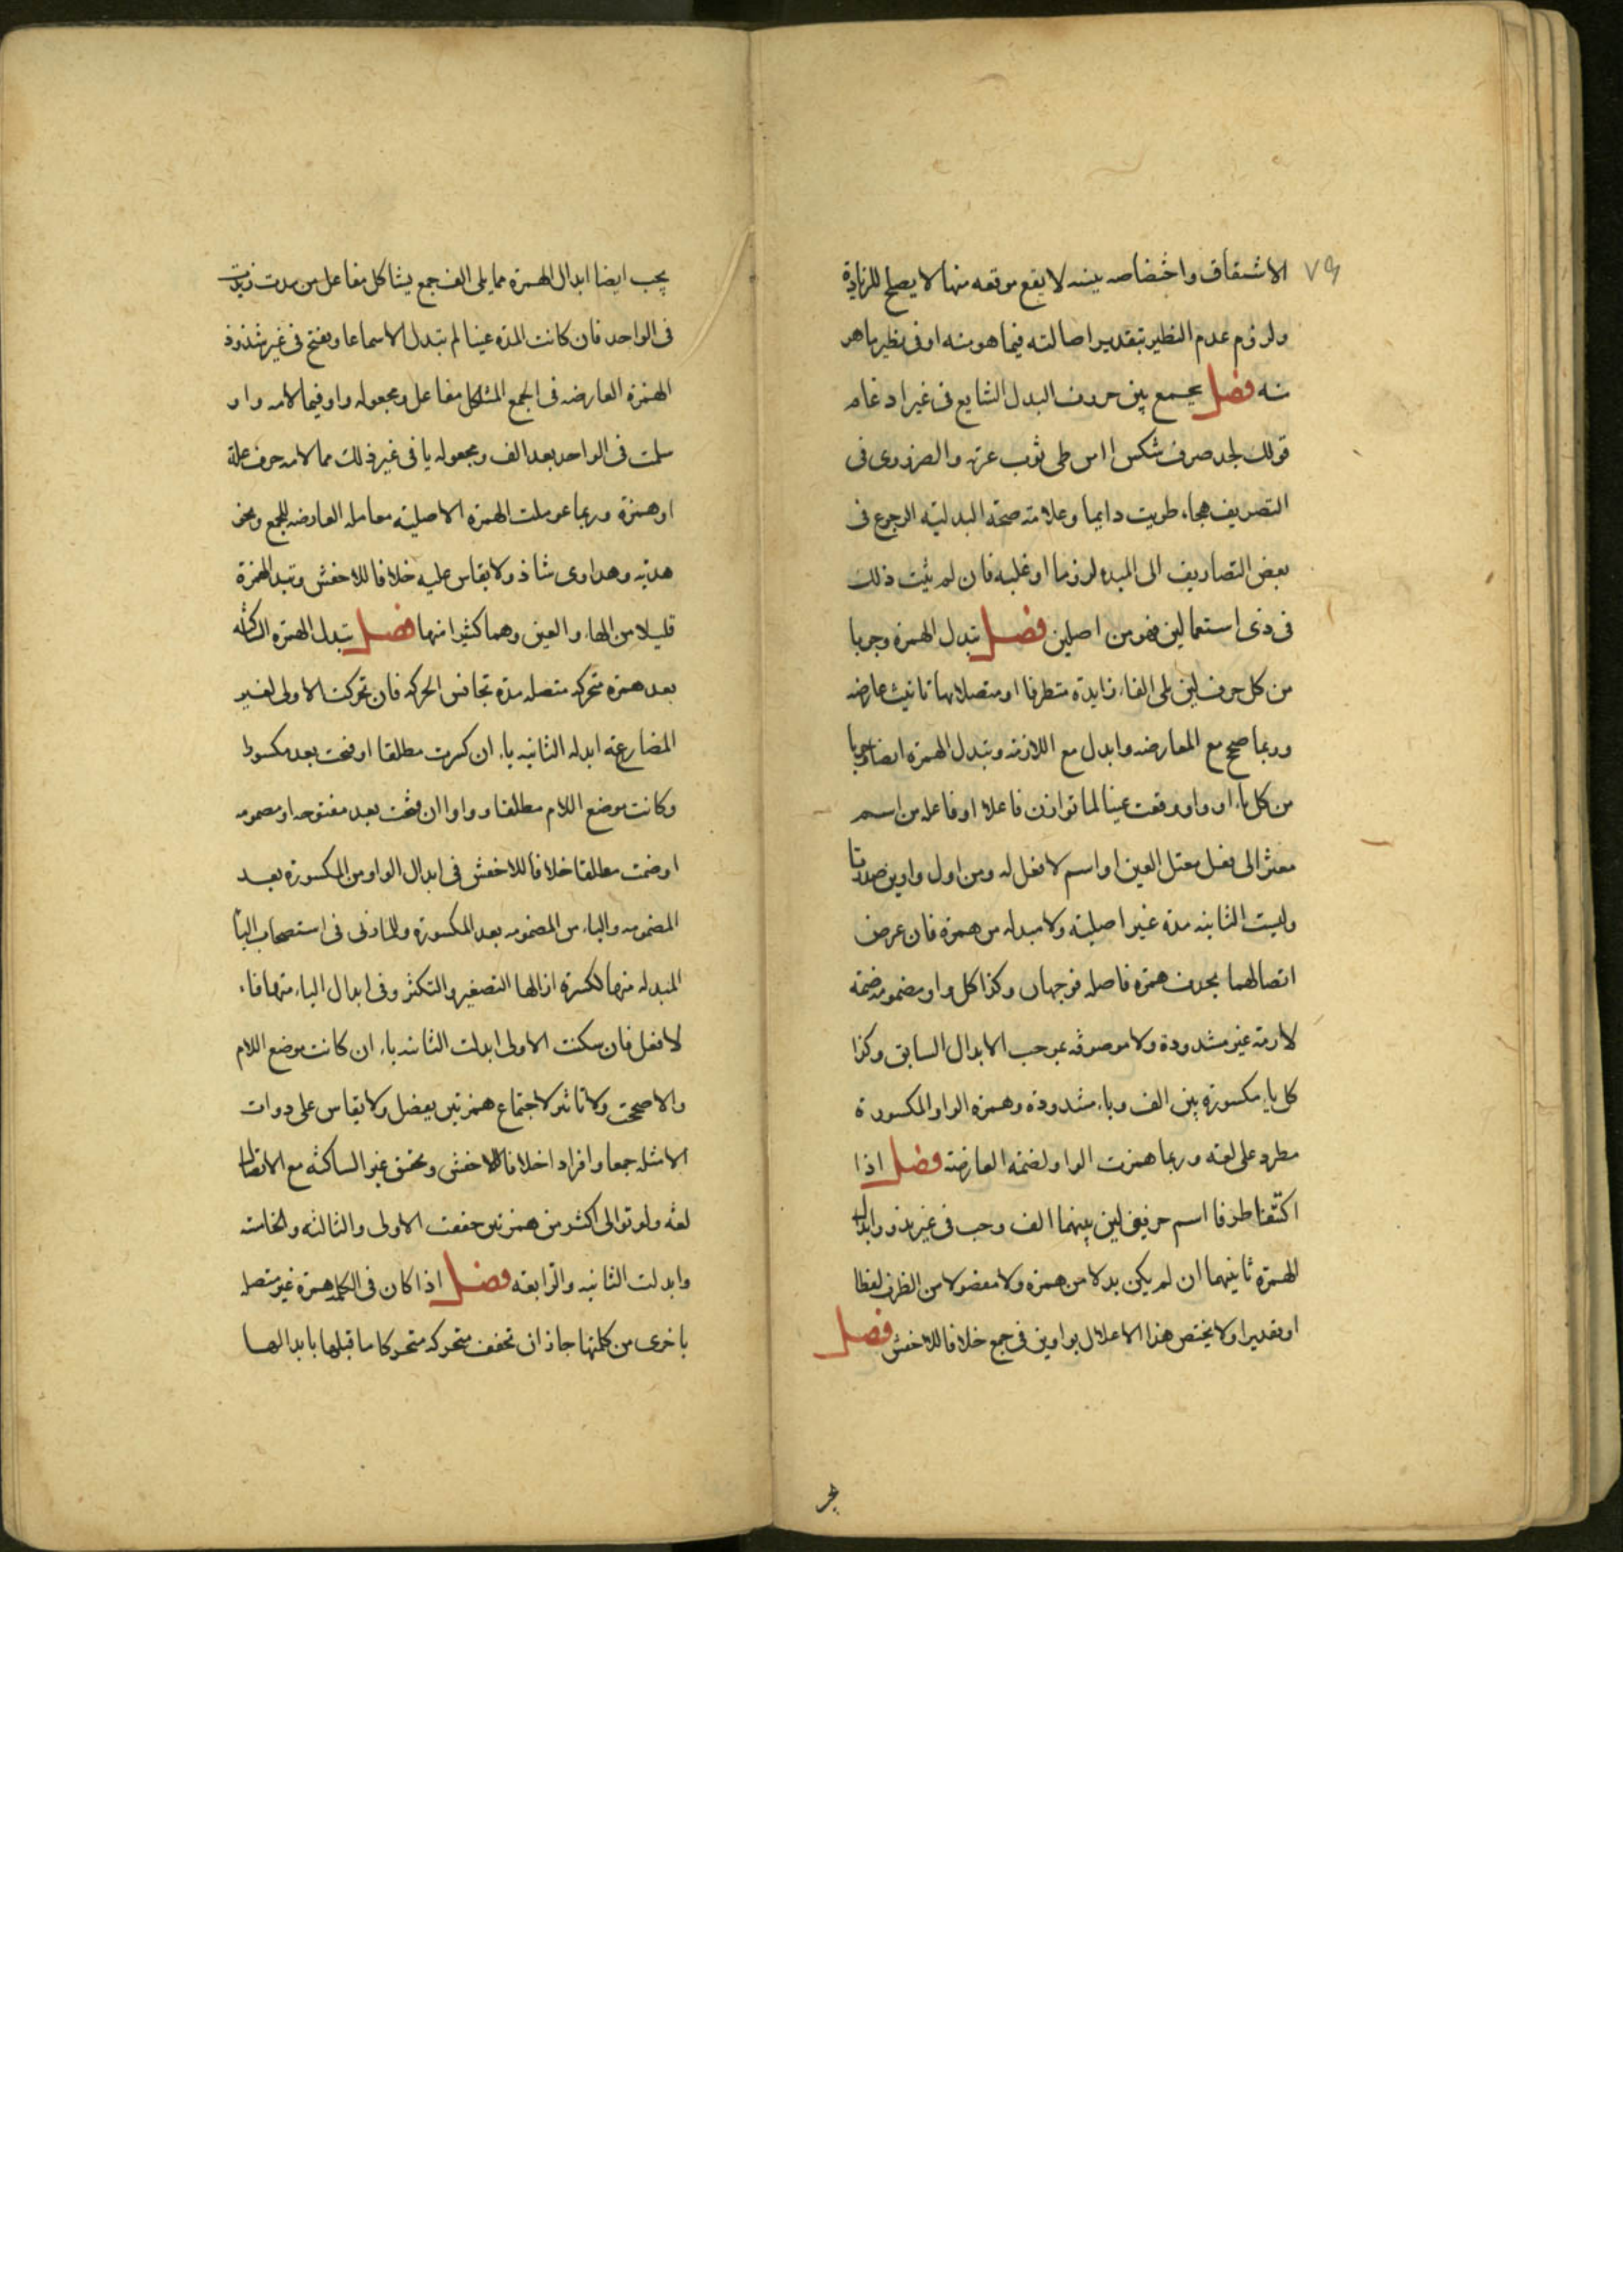 ٧٩
الاشتقاق واختصاصه ببنيه لا يقع موقعه منها لا يصلح للزيادة
ولزوم عدم النظير بتقدير اصالته فيما هو منه او فى نظير ما هو
منه فصل يجمع بين حروف البدل الشايع فى غير ادغام
قولك لجد صرف شكس امن طى ثوب عزته والضرورى فى
التصريف هجاء طويت دايما وعلامة صحة البدلية الرجوع فى
بعض التصاريف الى المبدل لزوما او غلبه فان لم يثبت ذلك
فى ذى استعمالين فهو من اصلين فصل تبدل الهمزة وجوبا
من كل حرف لين يلى الفا زايدة متطرفا او متصلا بها تانيث عارضه
وربما صح مع العارضه وابدل مع اللازمه وتبدل الهمزة ايضا وجوبا
من كل ياء او واو وقعت عينا لما توازن فاعلا او فاعله من اسم
معتزالى فعل معتل العين او اسم لا فعل له ومن اول واوين صدرتا
وليست الثانيه مدة غير اصليه ولا مبدله من همزة فان عرض
اتصالهما بحذف همزة فاصله فوجهان وكذا كل واو مضمومه ضمة
لازمة غير مشدودة ولا موصوفه بموجب الابدال السابق وكذا
كل ياء مكسورة بين الف وياء مشدودة وهمزة الواو المكسورة
مطرد على لغه وربما همزت الواو لضمة العارضة فصل اذا
اكتنفا طرفا اسم حرفى لين بينهما الف وجب فى غير ندور ابدال
الهمزة ثانيهما ان لم يكن بدلا من همزه ولا مفصولا من الطرف لفظا
او تقديرا ولا يختص هذا الاعلال بواوين فى جمع خلافا للاخفش فصل
يجب ايضا ابدال الهمزة مما يلى الف جمع يشاكل مفاعل من مدت زيدت
فى الواحد فان كانت المدة عينا لم تبدل الا سماعا ويفتح فى غير شذوذ
الهمزة العارضه فى الجمع المشاكل مفاعل ومجعوله واو فيما لامه واو
سلمت فى الواحد بعد الف ومجعوله يا فى غير ذلك مما لامه حرف علة
او همزة وربما عوملت الهمزة الاصلية معاملة العارضه للجمع ونحو
هديه وهداوى شاذ ولا يقاس عليه خلافا للاخفش وتبدل الهمزة
قليلا من الهاء والعين وهما كثيرا منها فصل تبدل الهمزة الساكنه
بعد همزة متحركه متصله مدة تجانس الحركه فان تحركت الاولى لغير
المضارعة ابدله الثانيه ياء ان كسرت مطلقا او فتحت بعد مكسور
وكانت موضع اللام مطلقا وواوا ان فتحت بعد مفتوحه او مضمومه
او ضمت مطلقا خلافا للاخفش فى ابدال الواو من المكسورة بعد
المضمومه والياء من المضمومه بعد المكسورة وللمازنى فى استصحاب اليا
المبدله منها لكسرة ازالها التصغير والتكثر وفى ابدال الياء منها فاء
لافعل فان سكنت الاولى ابدلت الثانيه ياء ان كانت موضع اللام
والا صححت ولا تاثير لاجتماع همزتين بفصل ولا يقاس على ذوات
الامثله جمعا وافرادا خلافا للاخفش وتحقق غير الساكنه مع الاتصال
لغه ولو توالى اكثر من همزتين حققت الاولى والثالثه والخامسه
وابدلت الثانيه والرابعه فصل اذا كان فى الكلمه همزة غير متصله
باخرى من كلمتها جاز ان تخفف متحركه متحركا ما قبلها بابدالها